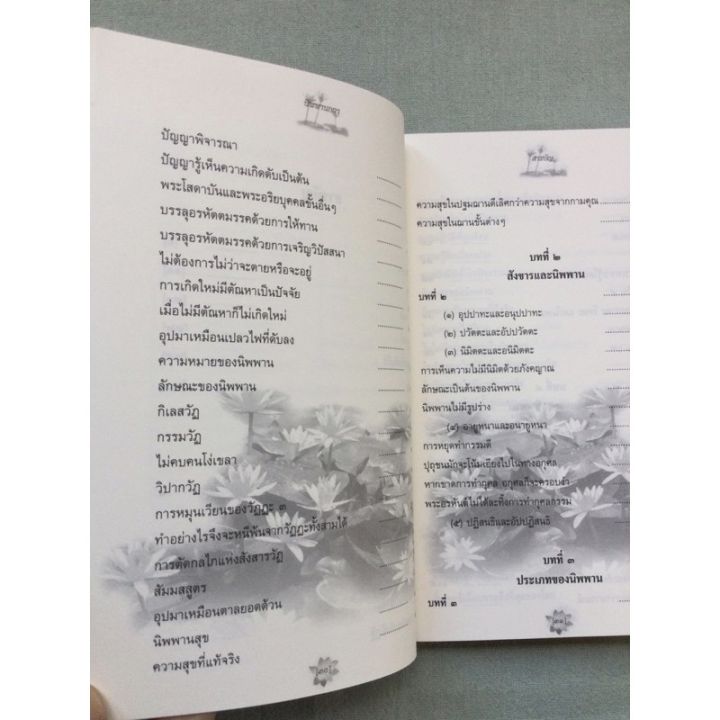 ปัญญาพิจารณา
ปัญญารู้เห็นความเกิดดับเป็นต้น
พระโสดาบันและพระอริยบุคคลชั้นอื่นๆ
บรรลุอรหัตตมรรคด้วยการให้ทาน
บรรลุอรหัตตมรรคด้วยการเจริญวิปัสสนา
ไม่ต้องการไม่ว่าจะตายหรือจะอยู่
การเกิดใหม่มีตัณหาเป็นปัจจัย
เมื่อไม่มีตัณหาก็ไม่เกิดใหม่
อุปมาเหมือนเปลวไฟที่ดับลง
ความหมายของนิพพาน
ลักษณะของนิพพาน
กิเลสวัฏ
กรรมวัฏ
ไม่คบคนโง่เขลา
วิปากวัฏ
การหมุนเวียนของวัฏฏะ ๓
ทำอย่างไรจึงจะหนีพ้นจากวัฏฏะทั้งสามได้
การตัดกลไกแห่งสังสารวัฏ
สัมมสสูตร
อุปมาเหมือนตาลยอดด้วน
นิพพานสุข
ความสุขที่แท้จริง
สารบัญ
ความสุขในปฐมฌานดีเลิศกว่าความสุขจากกามคุณ
ความสุขในฌานชั้นต่างๆ
บทที่ ๒
สังขารและนิพพาน
บทที่ ๒
(๑) อุปปาทะและอนุปปาทะ
(๒) ปวัตตะและอัปปวัตตะ
(๓) นิมิตตะและอนิมิตตะ
การเห็นความไม่มีนิมิตด้วยภังคญาณ
ลักษณะเป็นต้นของนิพพาน
นิพพานไม่มีรูปร่าง
(๔) อายูหนาและอนายูหนา
การหยุดทำกรรมดี
ปุถุชนมักจะโน้มเอียงไปในทางอกุศล
หากขาดการทำกุศล อกุศลก็จะครอบงำ
พระอรหันต์ไม่ได้ละทิ้งการทำกุศลกรรม
(๕) ปฏิสนธิและอัปปฏิสนธิ
บทที่ ๓
ประเภทของนิพพาน
บทที่ ๓